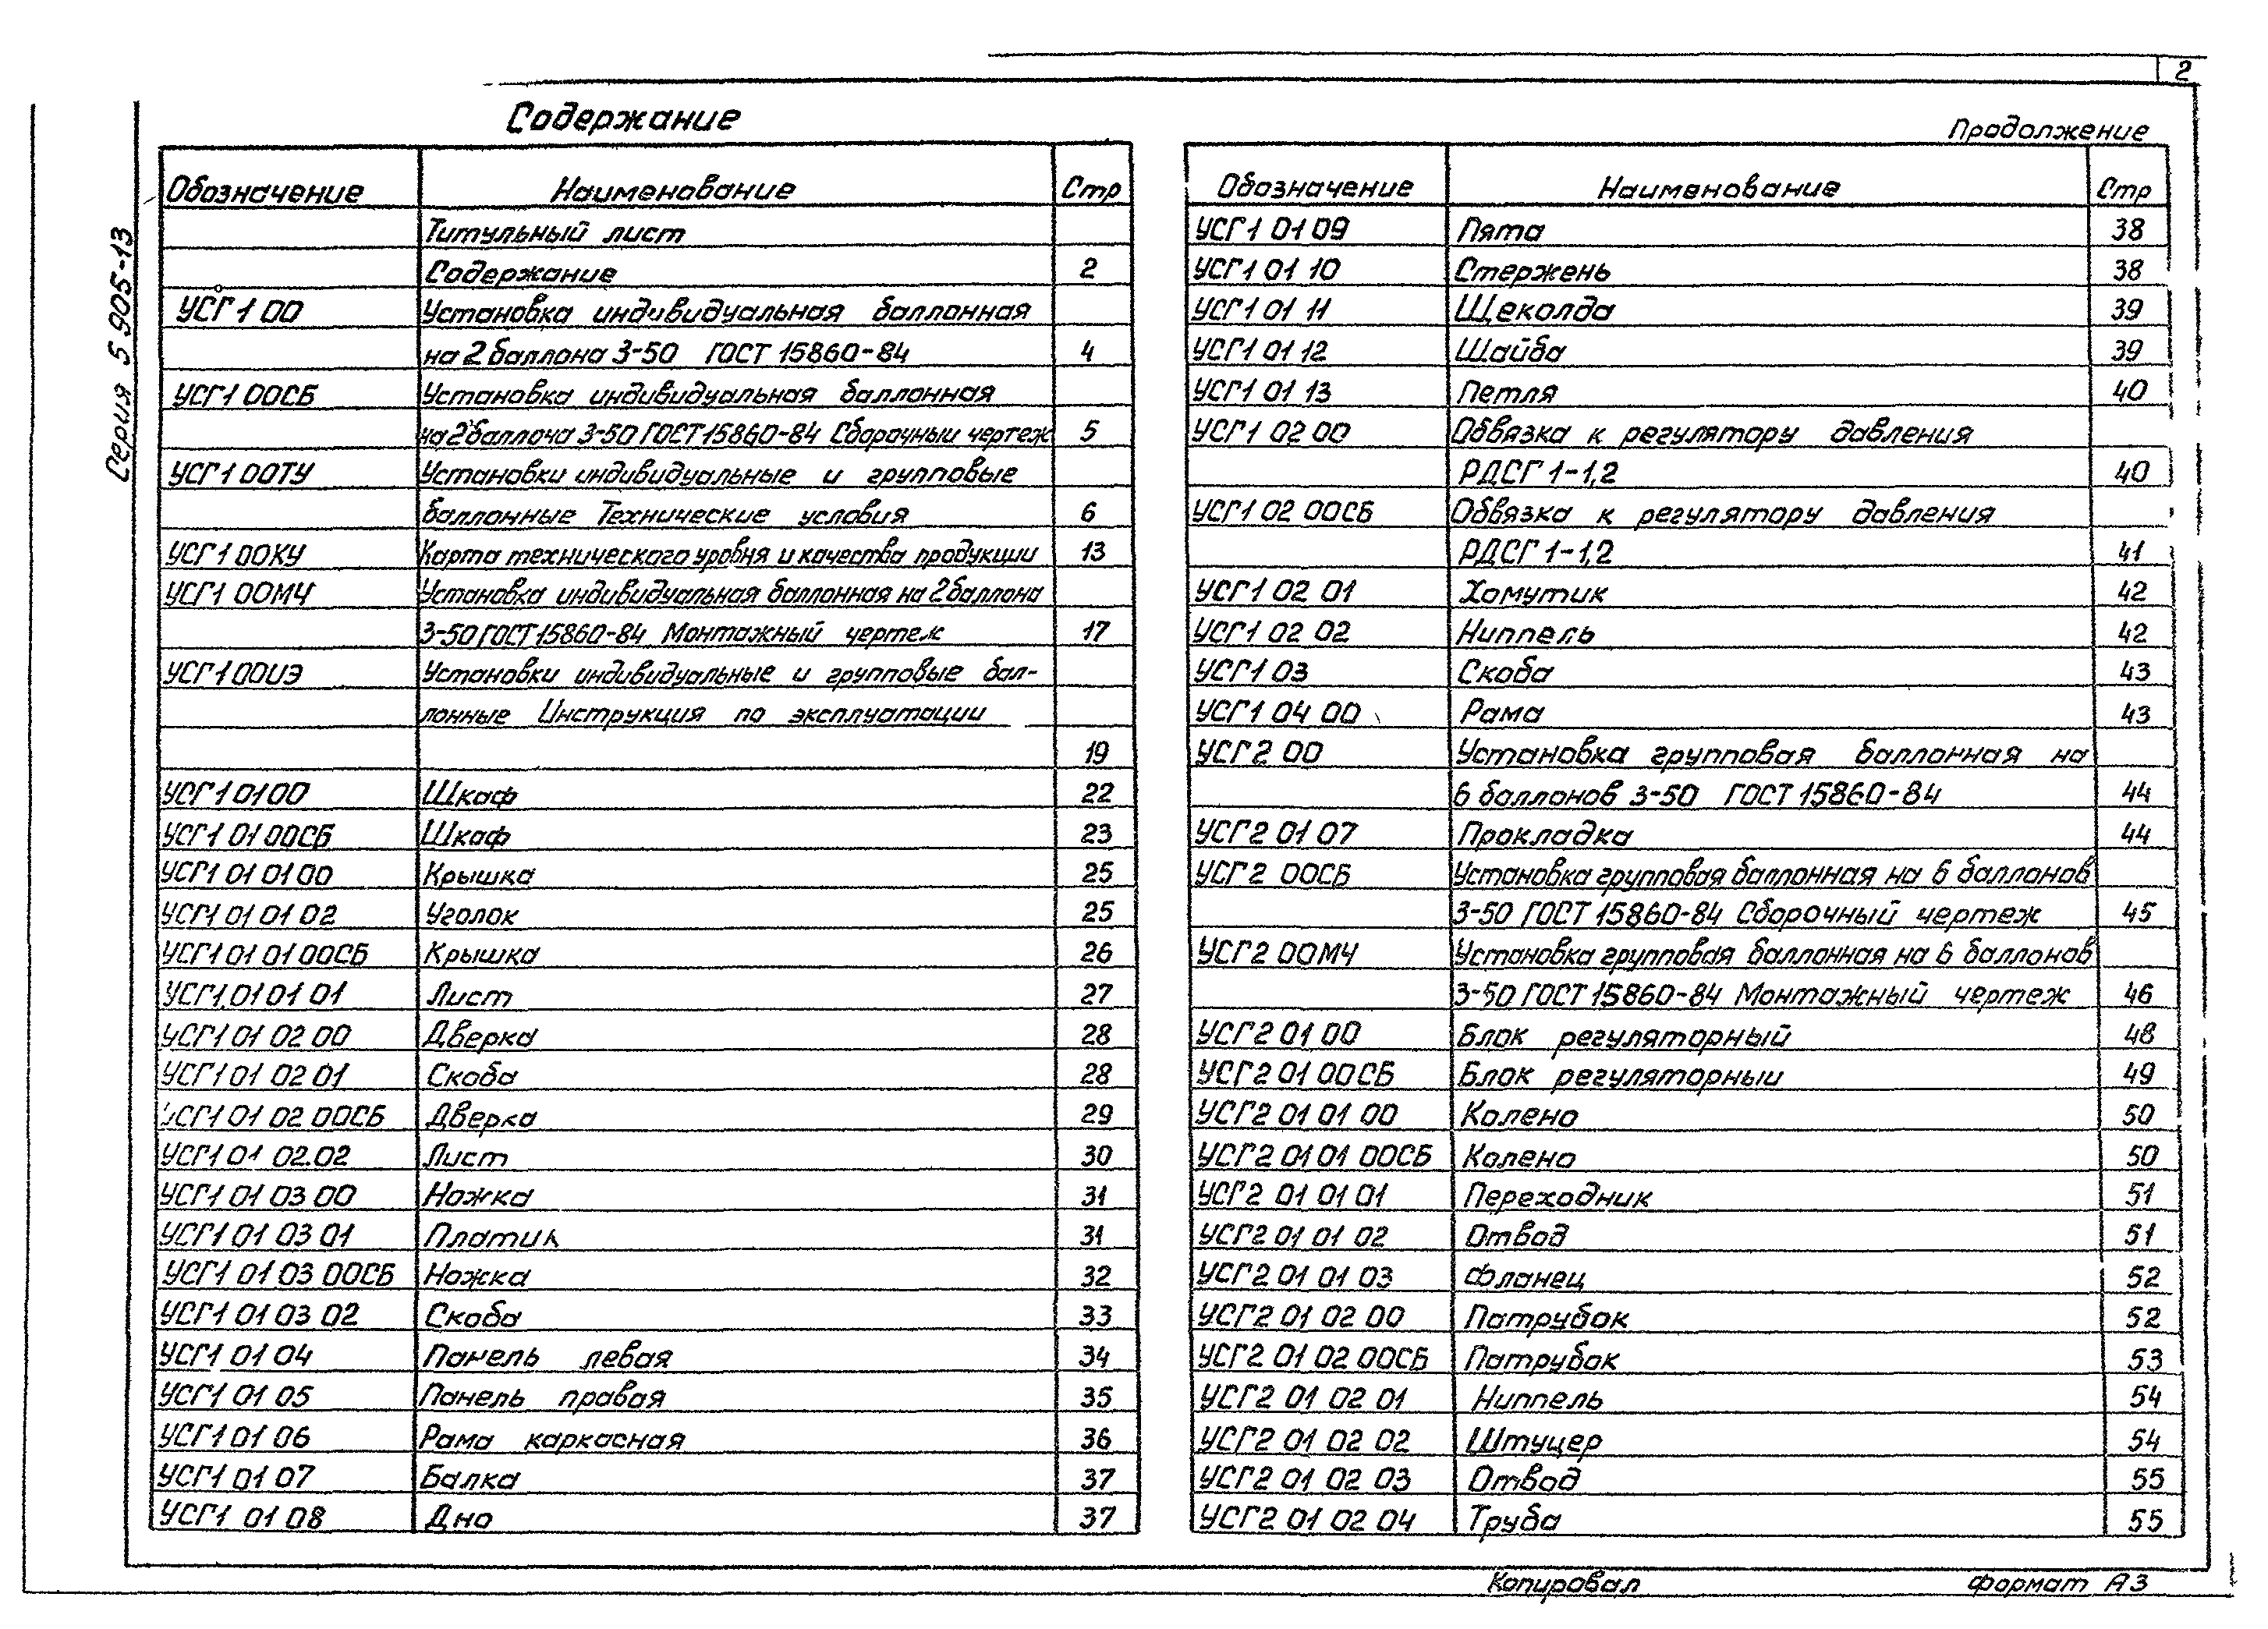 2
Содержание
Обозначение Наименование Стр
Титульный лист
Содержание 2
УСГ 1 00 Установка индивидуальная баллонная
на 2 баллона 3-50 ГОСТ 15860-84 4
УСГ1 00СБ Установка индивидуальная баллонная
на 2 баллона 3-50 ГОСТ 15860-84 Сборочный чертеж 5
УСГ1 00ТУ Установки индивидуальные и групповые
баллонные Технические условия 6
УСГ1 00КУ Карта технического уровня и качества продукции 13
УСГ1 00МЧ Установка индивидуальная баллонная на 2 баллона
3-50 ГОСТ 15860-84 Монтажный чертеж 17
УСГ1 00ИЭ Установки индивидуальные и групповые бал-
лонные Инструкция по эксплуатации
19
УСГ1 01 00 Шкаф 22
УСГ1 01 00СБ Шкаф 23
УСГ1 01 01 00 Крышка 25
УСГ1 01 01 02 Уголок 25
УСГ1 01 01 00СБ Крышка 26
УСГ1.01 01 01 Лист 27
УСГ1 01 02 00 Дверка 28
УСГ1 01 02 01 Скоба 28
УСГ1 01 02 00СБ Дверка 29
УСГ1 01 02.02 Лист 30
УСГ1 01 03 00 Ножка 31
УСГ1 01 03 01 Платик 31
УСГ1 01 03 00СБ Ножка 32
УСГ1 01 03 02 Скоба 33
УСГ1 01 04 Панель левая 34
УСГ1 01 05 Панель правая 35
УСГ1 01 06 Рама каркасная 36
УСГ1 01 07 Балка 37
УСГ1 01 08 Дно 37
Продолжение
Обозначение Наименование Стр
УСГ1 01 09 Пята 38
УСГ1 01 10 Стержень 38
УСГ1 01 11 Щеколда 39
УСГ1 01 12 Шайба 39
УСГ1 01 13 Петля 40
УСГ1 02 00 Обвязка к регулятору давления
РДСГ 1-1,2 40
УСГ1 02 00СБ Обвязка к регулятору давления
РДСГ 1-1,2 41
УСГ1 02 01 Хомутик 42
УСГ1 02 02 Ниппель 42
УСГ1 03 Скоба 43
УСГ1 04 00 Рама 43
УСГ2 00 Установка групповая баллонная на
6 баллонов 3-50 ГОСТ 15860-84 44
УСГ2 01 07 Прокладка 44
УСГ2 00СБ Установка групповая баллонная на 6 баллонов
3-50 ГОСТ 15860-84 Сборочный чертеж 45
УСГ2 00МЧ Установка групповая баллонная на 6 баллонов
3-50 ГОСТ 15860-84 Монтажный чертеж 46
УСГ2 01 00 Блок регуляторный 48
УСГ2 01 00СБ Блок регуляторный 49
УСГ2 01 01 00 Колено 50
УСГ2 01 01 00СБ Колено 50
УСГ2 01 01 01 Переходник 51
УСГ2 01 01 02 Отвод 51
УСГ2 01 01 03 Фланец 52
УСГ2 01 02 00 Патрубок 52
УСГ2 01 02 00СБ Патрубок 53
УСГ2 01 02 01 Ниппель 54
УСГ2 01 02 02 Штуцер 54
УСГ2 01 02 03 Отвод 55
УСГ2 01 02 04 Труба 55
Серия 5 905-13
Копировал формат А3